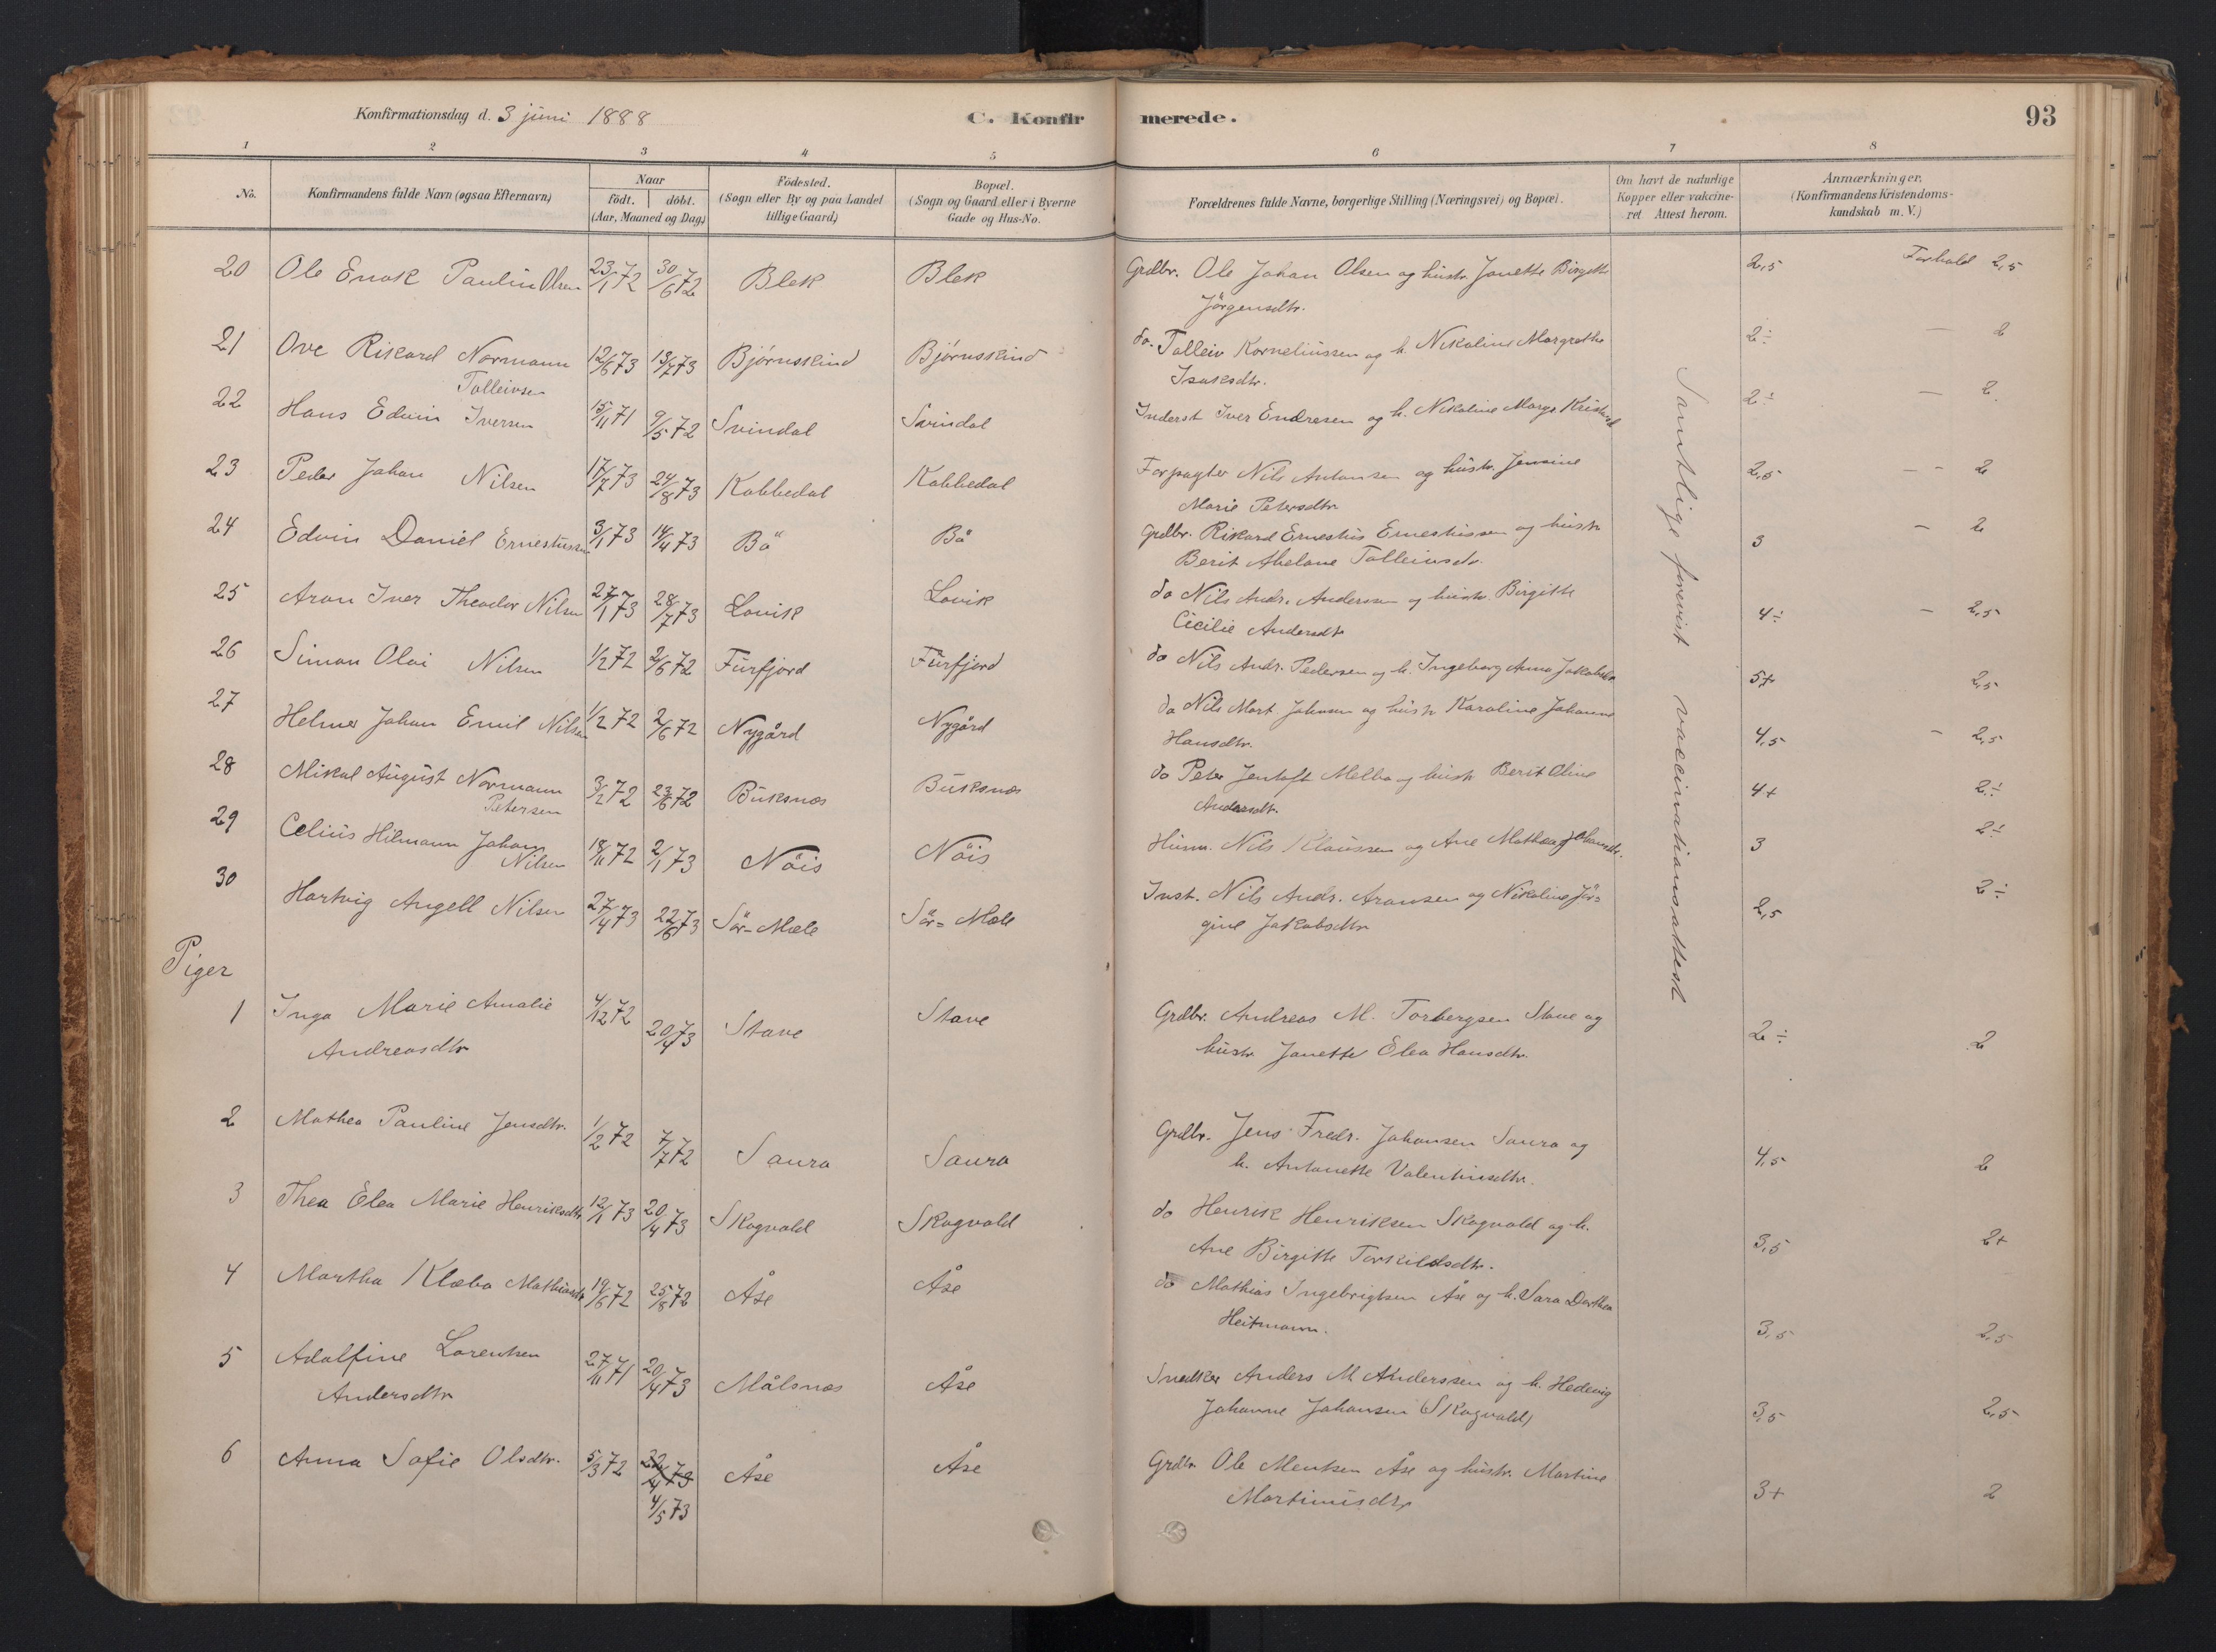 Konfirmationsdag d. 3 juni 1888 C. Konfirmerede. 93
1 2 3 4 5 6 7 8
No. Konfirmandens fulde Navn (ogsaa Efternavn) Naar født. døbt. (Aar, Maaned og Dag) Födested. (Sogn eller By og paa Landet tillige Gaard) Bopæl. (Sogn og Gaard eller i Byerne Gade og Hus-No. Forældrenes fulde Navne, borgerlige Stilling (Næringsvei) og Bopæl. Om havt de naturlige Kopper eller vakcineret Attest herom. Anmærkninger. (Konfirmandens Kristendomskundskab m. V.)
Samtlige forevist vaccinationsattest
20 Ole Enok Paulin Olsen 23/1 72 30/6 72 Blek Blek Grdbr. Ole Johan Olsen og hustr. Janette Birgitte 2,5 Forhold 2,5
Jörgensdtr.
21 Ove Rikard Normann 12/6 73 13/7 73 Björnskind Björnskind do. Tolleiv Korneliussen og h. Nikoline Margrethe 2÷ — 2
Tolleivsen Isaksdtr.
22 Hans Edvin Iversen 15/11 71 9/5 72 Svindal Svindal Inderst Iver Endresen og h. Nikoline Margr. 2÷ — 2
23 Peder Johan Nilsen 17/7 73 24/8 73 Kobbedal Kobbedal Forpagter Nils Antonsen og hustr. Jensine 2,5 — 2
Marie Petersdtr
24 Edvin Daniel Ernestussen 3/1 73 14/4 73 Bö Bö Grdbr. Rikard Ernestus Ernestussen og hustr 3 — 2
Berit Abelone Tolleivsdr.
25 Aron Iver Theodor Nilsen 27/1 73 28/7 73 Lovik Lovik do Nils Andr. Andersen og hustr. Birgitte 4÷ — 2,5
Cicilie Andersdt
26 Simon Olai Nilsen 1/2 72 2/6 72 Furfjord Furfjord do Nils Andr. Pedersen og h. Ingeborg Anna Jakobsdr 5+ 2,5
27 Helmer Johan Emil Nilsen 1/2 72 2/6 72 Nygård Nygård do Nils Mart. Johnsen og hustr Karoline Johanne 4,5 — 2,5
Hansdtr.
28 Mikal August Normann 3/2 72 23/6 72 Buksnes Buksnes do Peter Jentoft Melbo og hustr Berit Oline 4+ 2÷
Petersen Andersdt.
29 Celius Hilmann Johan 18/11 72 2/1 73 Nöis Nöis Husm. Nils Klaussen og Ane Mathea Johansdr. 3 2÷
Nilsen
30 Hartvig Angell Nilsen 27/4 73 22/6 73 Sör-Mele Sör=Mele Inst. Nils Andr. Aronsen og Nikoline Jör= 2,5 2÷
gine Jakobsdtr
Piger
1 Inga Marie Amalie 4/12 72 20/4 73 Stave Stave Grdbr. Andreas M. Torbergsen Stave og 2÷ 2
Andreasdtr hustr Janette Elea Hansdtr.
2 Mathea Pauline Jensdtr. 1/2 72 7/7 72 Saura Saura Grdbr. Jens Fredr. Johansen Saura og 4,5 2
h. Antonette Valentinsdtr.
3 Thea Elea Marie Henriksdtr 12/1 73 20/4 73 Skogvold Skogvold do Henrik Henriksen Skogvold og h. 3,5 2+
Ane Birgitte Torkildsdtr.
4 Martha Klæbo Mathiasdr 19/6 72 25/8 72 Åse Åse do Mathias Ingebrigtsen Åse og h. Sara Dorthea 3,5 2,5
Heitmann.
5 Adolfine Lorentsen 27/11 71 20/4 73 Målsnes Åse Snedker Anders M. Anderssen og h. Hedevig 3,5 2,5
Andersdtr Johanne Johansen (Skogvold)
6 Anna Sofie Olsdtr. 5/3 72 20/4 73 Åse Åse Grdbr Ole Mentsen Åse og hustr. Martine 3+ 2
4/5 73 Martinusdtr